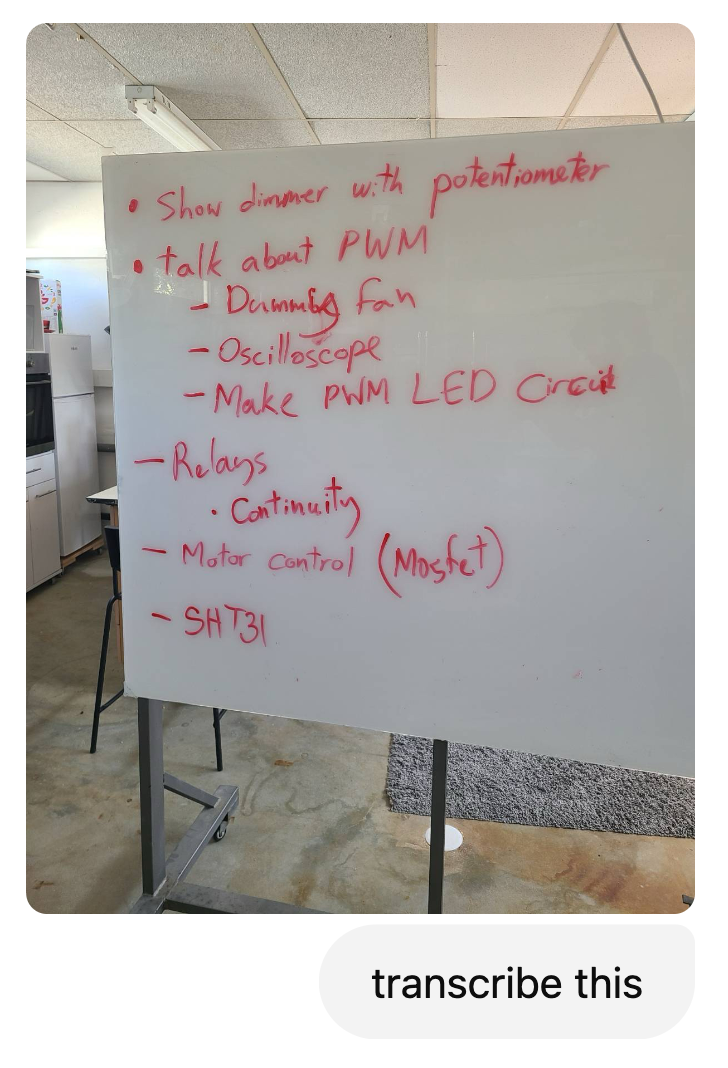 • Show dimmer with potentiometer
• talk about PWM
- fan
- Oscilloscope
- Make PWM LED Circuit
- Relays
• Continuity
- Motor control (Mosfet)
- SHT31
transcribe this